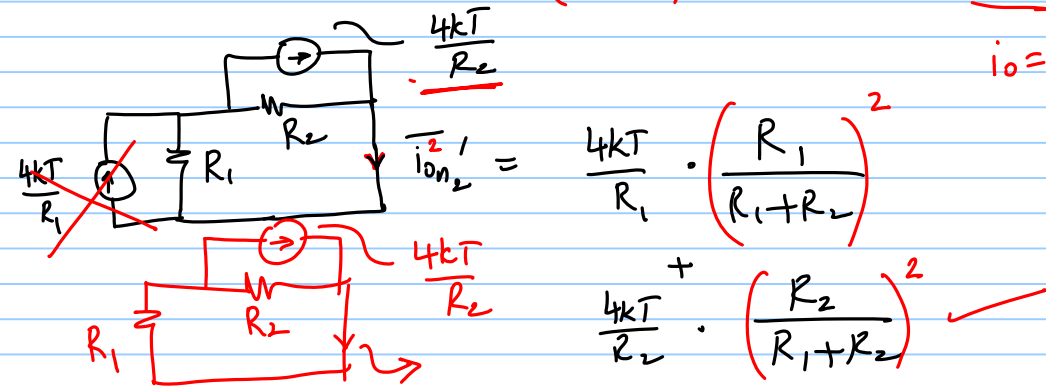 4kT/R₂
i₀ =
4kT/R₁
R₁
R₂
i²on₂' = 4kT/R₁ · (R₁/(R₁+R₂))²
+
4kT/R₂ · (R₂/(R₁+R₂))²
4kT/R₂
R₂
R₁